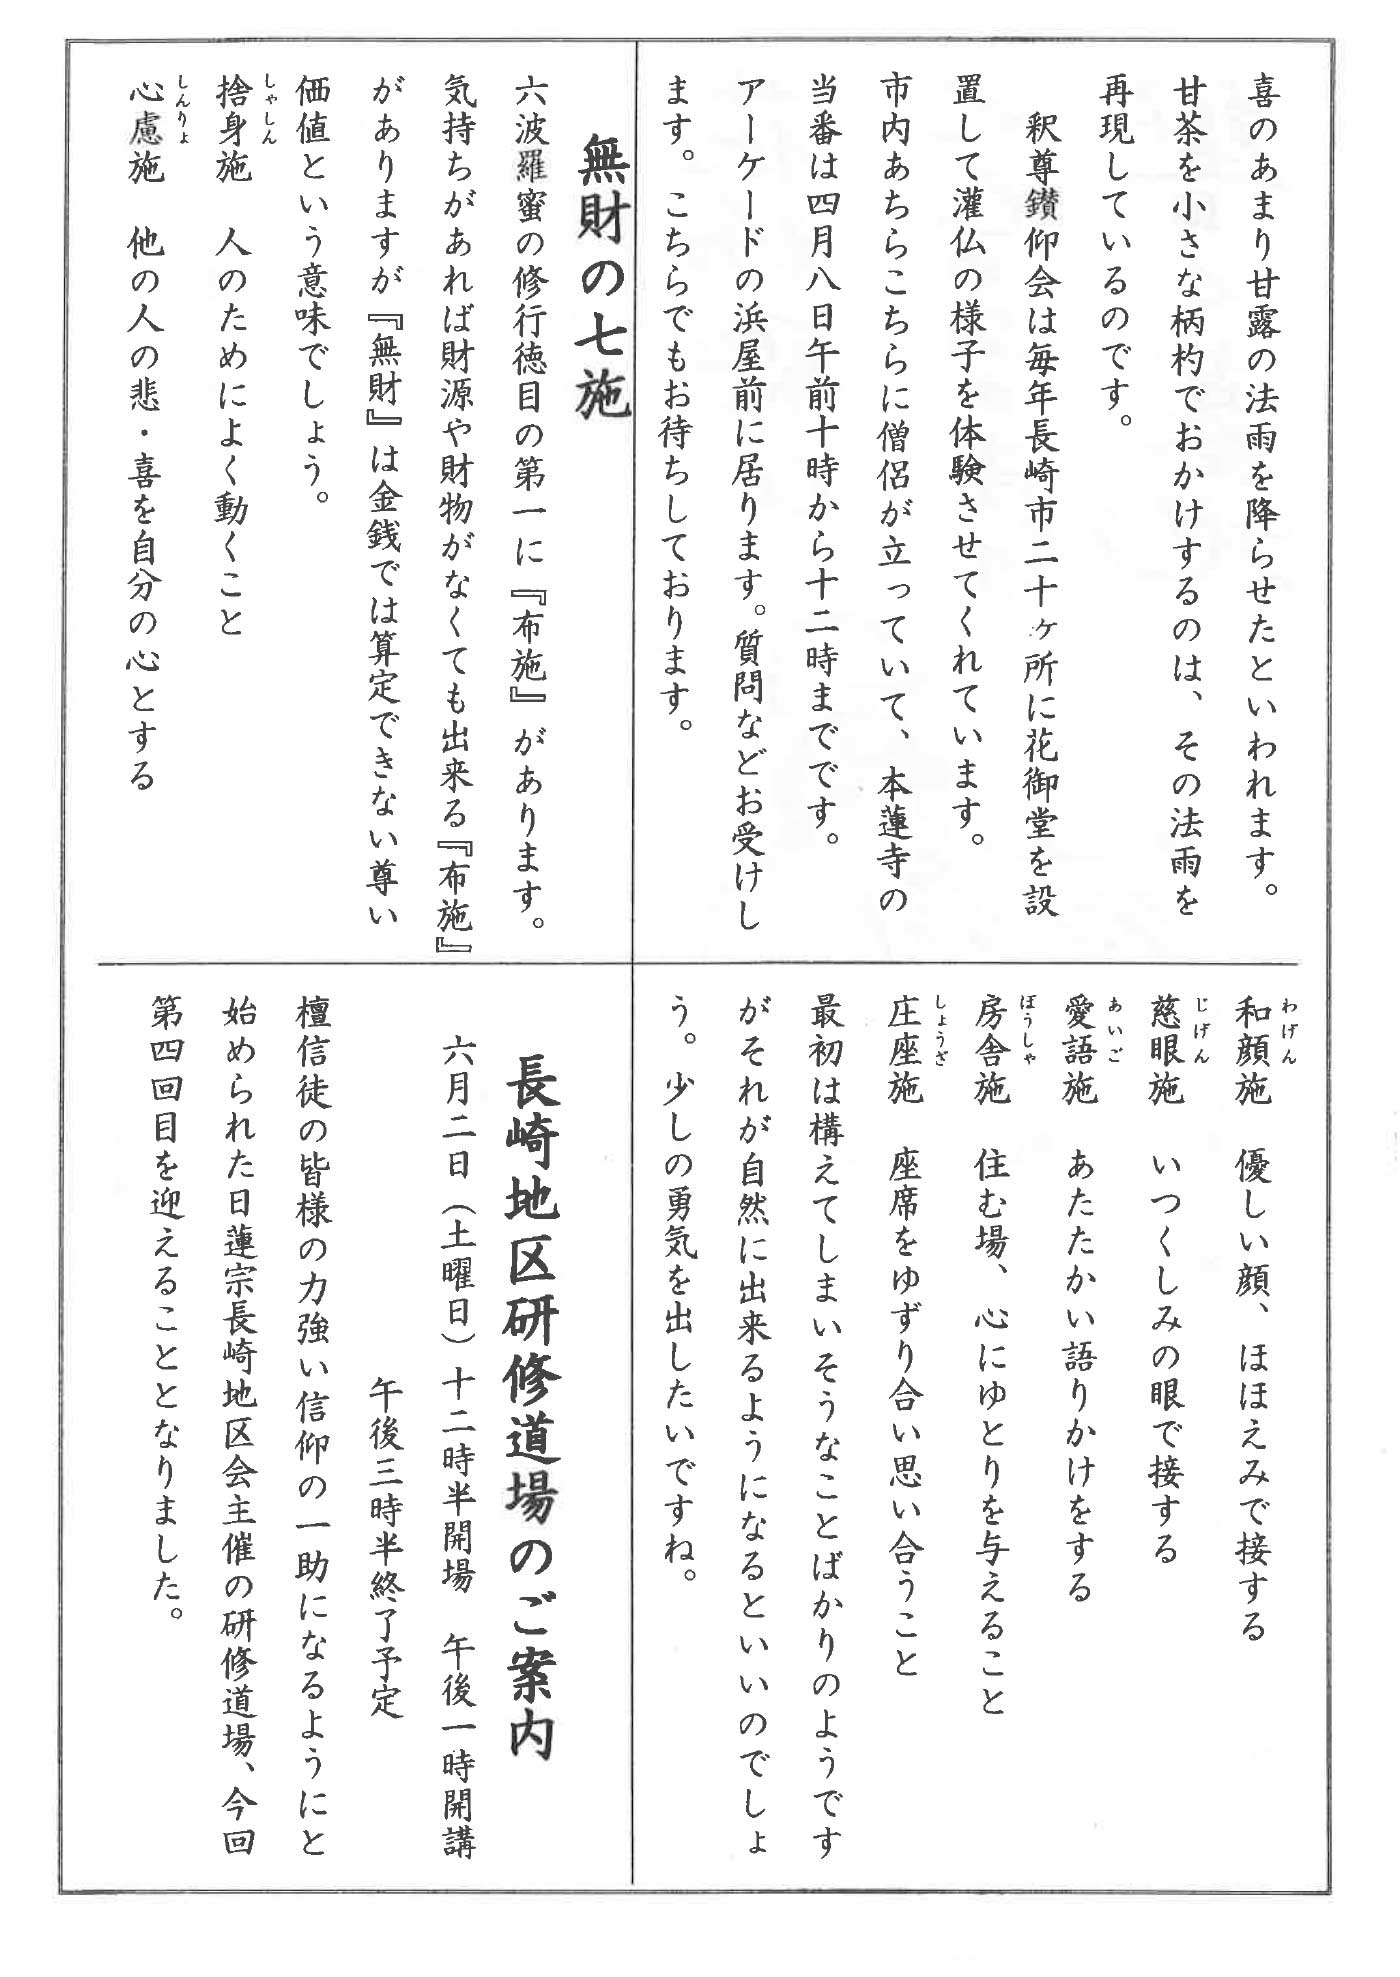 喜のあまり甘露の法雨を降らせたといわれます。
甘茶を小さな柄杓でおかけするのは、その法雨を
再現しているのです。
釈尊鑚仰会は毎年長崎市二十ヶ所に花御堂を設
置して灌仏の様子を体験させてくれています。
市内あちらこちらに僧侶が立っていて、本蓮寺の
当番は四月八日午前十時から十二時までです。
アーケードの浜屋前に居ります。質問などお受けし
ます。こちらでもお待ちしております。
無財の七施
六波羅蜜の修行徳目の第一に『布施』があります。
気持ちがあれば財源や財物がなくても出来る『布施』
がありますが『無財』は金銭では算定できない尊い
価値という意味でしょう。
捨身施 人のためによく動くこと
しゃしん
心慮施 他の人の悲・喜を自分の心とする
しんりょ
和顔施 優しい顔、ほほえみで接する
わげん
慈眼施 いつくしみの眼で接する
じげん
愛語施 あたたかい語りかけをする
あいご
房舎施 住む場、心にゆとりを与えること
ぼうしゃ
庄座施 座席をゆずり合い思い合うこと
しょうざ
最初は構えてしまいそうなことばかりのようです
がそれが自然に出来るようになるといいのでしょ
う。少しの勇気を出したいですね。
長崎地区研修道場のご案内
六月二日（土曜日）十二時半開場 午後一時開講
午後三時半終了予定
檀信徒の皆様の力強い信仰の一助になるようにと
始められた日蓮宗長崎地区会主催の研修道場、今回
第四回目を迎えることとなりました。